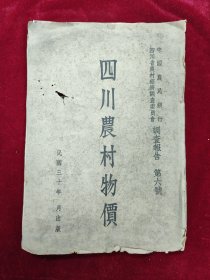 中國農民銀行
四川省農村經濟調查委員會
調查報告 第六號
四川農村物價
民國三十年 月出版